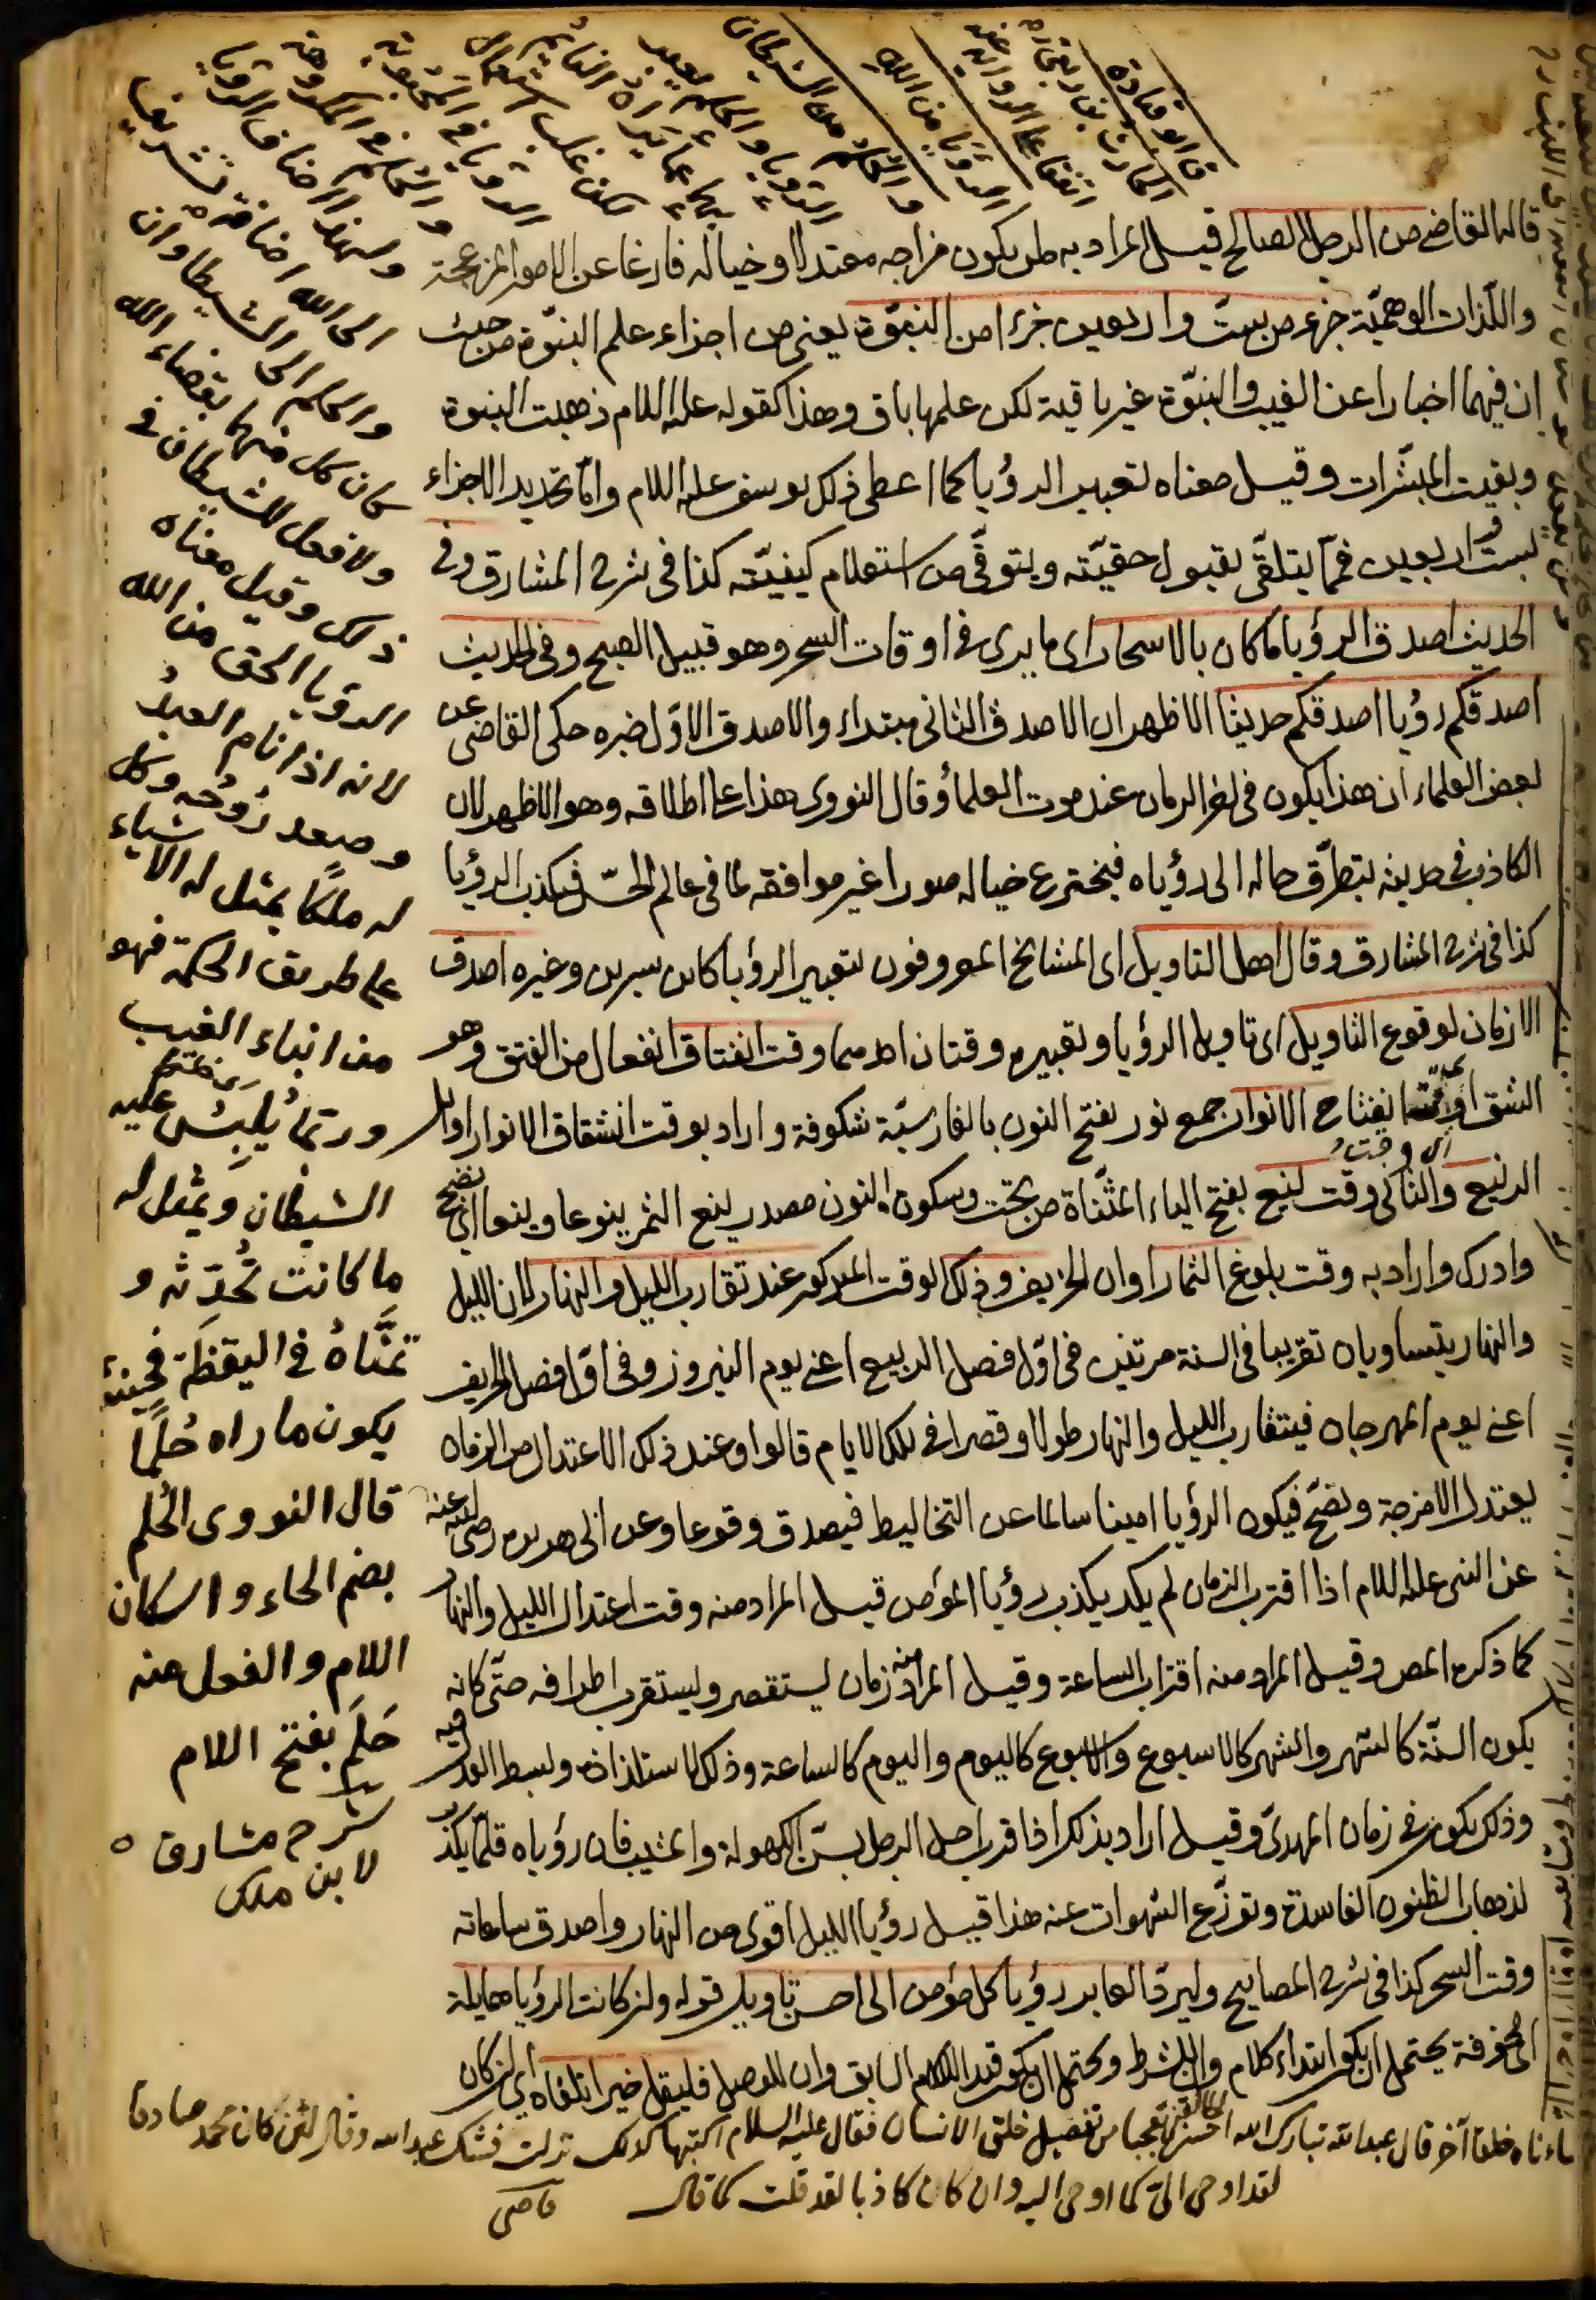 قاله القاضى من الرجل الصالح قيل المراد به من يكون مزاجه معتدلا وخياله فارغا عن الامور المزعجة
واللذات الوهمية جزء من ست واربعين جزءا من النبوة يعنى من اجزاء علم النبوة من حيث
ان فيهما اخبارا عن الغيب والنبوة غير باقية لكن علمها باق وهذا كقوله عليه السلام ذهبت النبوة
وبقيت المبشرات وقيل معناه تعبير الرؤيا كما اعطى ذلك يوسف عليه السلام واما تحديد الاجزاء
بست واربعين فمما يتلقى بقبول حقيته ويتوقى من استعلام كيفيته كذا فى شرح المشارق وفى
الحديث اصدق الرؤيا ما كان بالاسحار اى ما يرى فى اوقات السحر وهو قبيل الصبح وفى الحديث
اصدقكم رؤيا اصدقكم حديثا الاظهر ان الاصدق الثانى مبتداء والاصدق الاول خبره حكى القاضى عن
بعض العلماء ان هذا يكون فى اخر الزمان عند موت العلماء وقال النووى هذا على اطلاقه وهو الاظهر لان
الكاذب فى حديثه يتطرق حاله الى رؤياه فيخترع خياله صورا غير موافقة لما فى عالم الحس فيكذب الرؤيا
كذا فى شرح المشارق وقال اهل التاويل اى المشايخ المعروفون بتعبير الرؤيا كابن سيرين وغيره اصدق
الازمان لوقوع التاويل اى تاويل الرؤيا وتعبيره وقتان احدهما وقت انفتاق انفعال من الفتق وهو
الشق انفتاح الانوار جمع نور بفتح النون بالفارسية شكوفة واراد بوقت انشقاق الانوار اوائل
الربيع والثانى وقت ينع بفتح الياء المثناة من تحت وسكون النون مصدر ينع الثمر ينوعا وينعا اى نضج
اى وقت
وادرك واراد به وقت بلوغ الثمار اوان الخريف وذلك الوقت المذكور عند تقارب الليل والنهار لان الليل
والنهار يتساويان تقريبا فى السنة مرتين فى اول فصل الربيع اعنى يوم النيروز وفى اول فصل الخريف
اعنى يوم المهرجان فيتقارب الليل والنهار طولا وقصرا فى تلك الايام قالوا وعند ذلك الاعتدال من الزمان
يعتدل الامزجة وتصح فيكون الرؤيا امينا سالما عن التخاليط فيصدق وقوعا وعن ابى هريره رضى الله عنه
عن النبى عليه السلام اذا اقترب الزمان لم يكد يكذب رؤيا المؤمن قيل المراد منه وقت اعتدال الليل والنهار
كما ذكره المص وقيل المراد منه اقتراب الساعة وقيل المراد منه زمان يستقصر ويستقرب اطرافه حتى كانه
يكون السنة كالشهر والشهر كالاسبوع والاسبوع كاليوم واليوم كالساعة وذلك لاستلذاذه وبسط العدل فيه
وذلك يكون فى زمان المهدى وقيل اراد بذلك اذا قرب اجل الرجل بسن الكهولة والمشيب فان رؤياه قلما يكذب
لذهاب الظنون الفاسدة وتوزع الشهوات عنه هذا قيل رؤيا الليل اقوى من النهار واصدق ساعاته
وقت السحر كذا فى شرح المصابيح وليرد العابر رؤيا كل مؤمن الى احسن تاويل قوله وان كانت الرؤيا هايلة
اى مخوفة يحتمل ان يكون ابتداء كلام وان للشرط ويحتمل ان يكون قيد الكلام السابق وان للوصل فليقل خيرا تلقاه اى ان كان
انشاناه خلقا آخر قال عبدالله تبارك الله احسن الخالقين تعجبا من تفصيل خلق الانسان فقال عليه السلام اكتبها كذلك نزلت فشك عبدالله وقال لئن كان محمد صادقا
لقد اوحى الى كما اوحى اليه وان كان كاذبا لقد قلت كما قال قاضى
ق ابو قتادة
الحارث بن ربعى
اتفقا على الرواية عنه
الرؤيا من الله
والحلم من الشيطان
الرؤيا والحلم يعبر
بهما عما يراه النائم
لكن غلب استعمال
الرؤيا فى المحبوبة
والحلم فى المكروهة
ولهذا اضاف الرؤيا
الى الله اضافة تشريف
والحلم الى الشيطان وان
كان كل منهما بقضاء الله
ولا فعل للشيطان فى
ذلك وقيل معناه
الرؤيا الحق من الله
لانه اذا نام العبد
وصعد روحه وكل
له ملكا يمثل له الاشياء
على طريق الحكمة فهو
من انباء الغيب
وربما يلبس عليه
الشيطان ويمثل له
ما كانت تحدثه و
تمناه فى اليقظة فحينئذ
يكون ما راه حلما
قال النووى الحلم
بضم الحاء واسكان
اللام والفعل منه
حلم بفتح اللام
شرح مشارق
لابن ملك